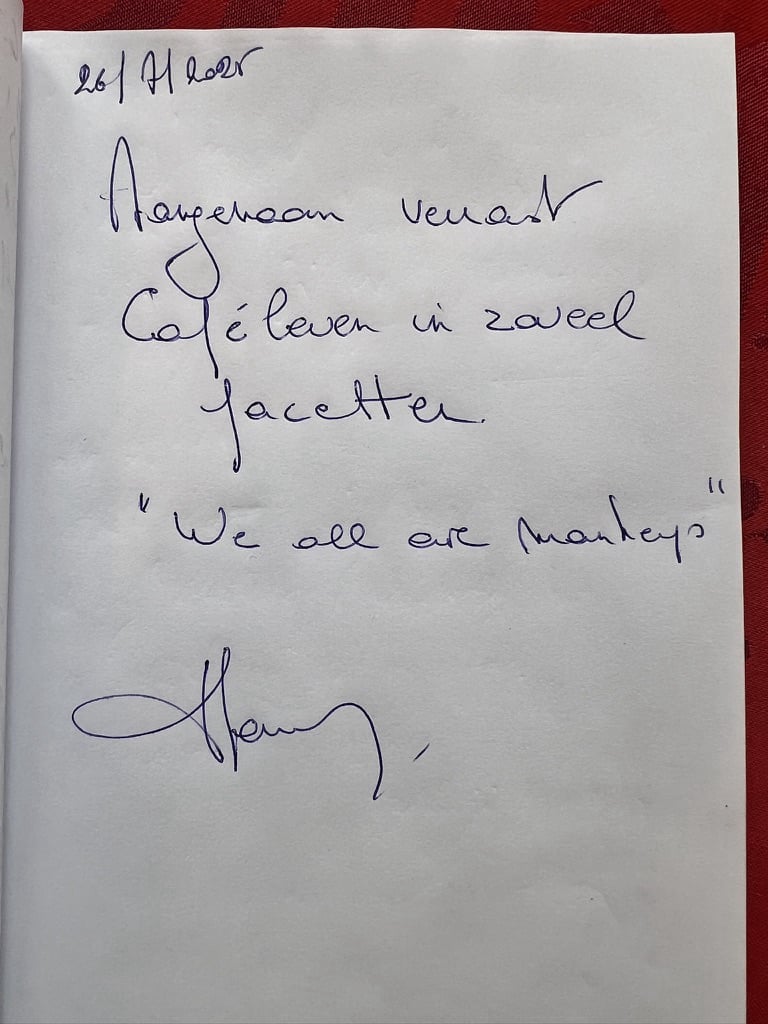 26/7/2025
Aangenaam verrast
Café leven in zoveel
facetten.
"We all are monkeys"